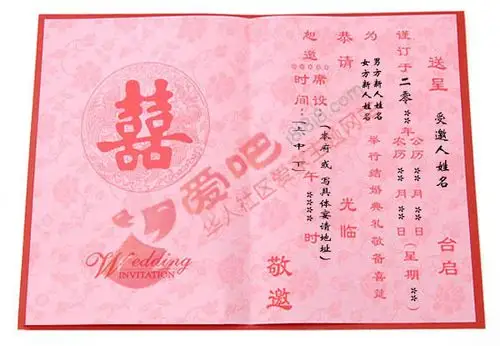 送呈 受邀人姓名 台启
谨订于二零**年公历**月**日(星期**)
农历**月**日
为男方新人姓名
女方新人姓名
举行结婚典礼敬备喜筵
恭请 光临
恕邀*****
席设:(本府或写具体宴请地址)
时间:(上中下)午**时
敬邀
囍
Wedding
INVITATION
爱吧